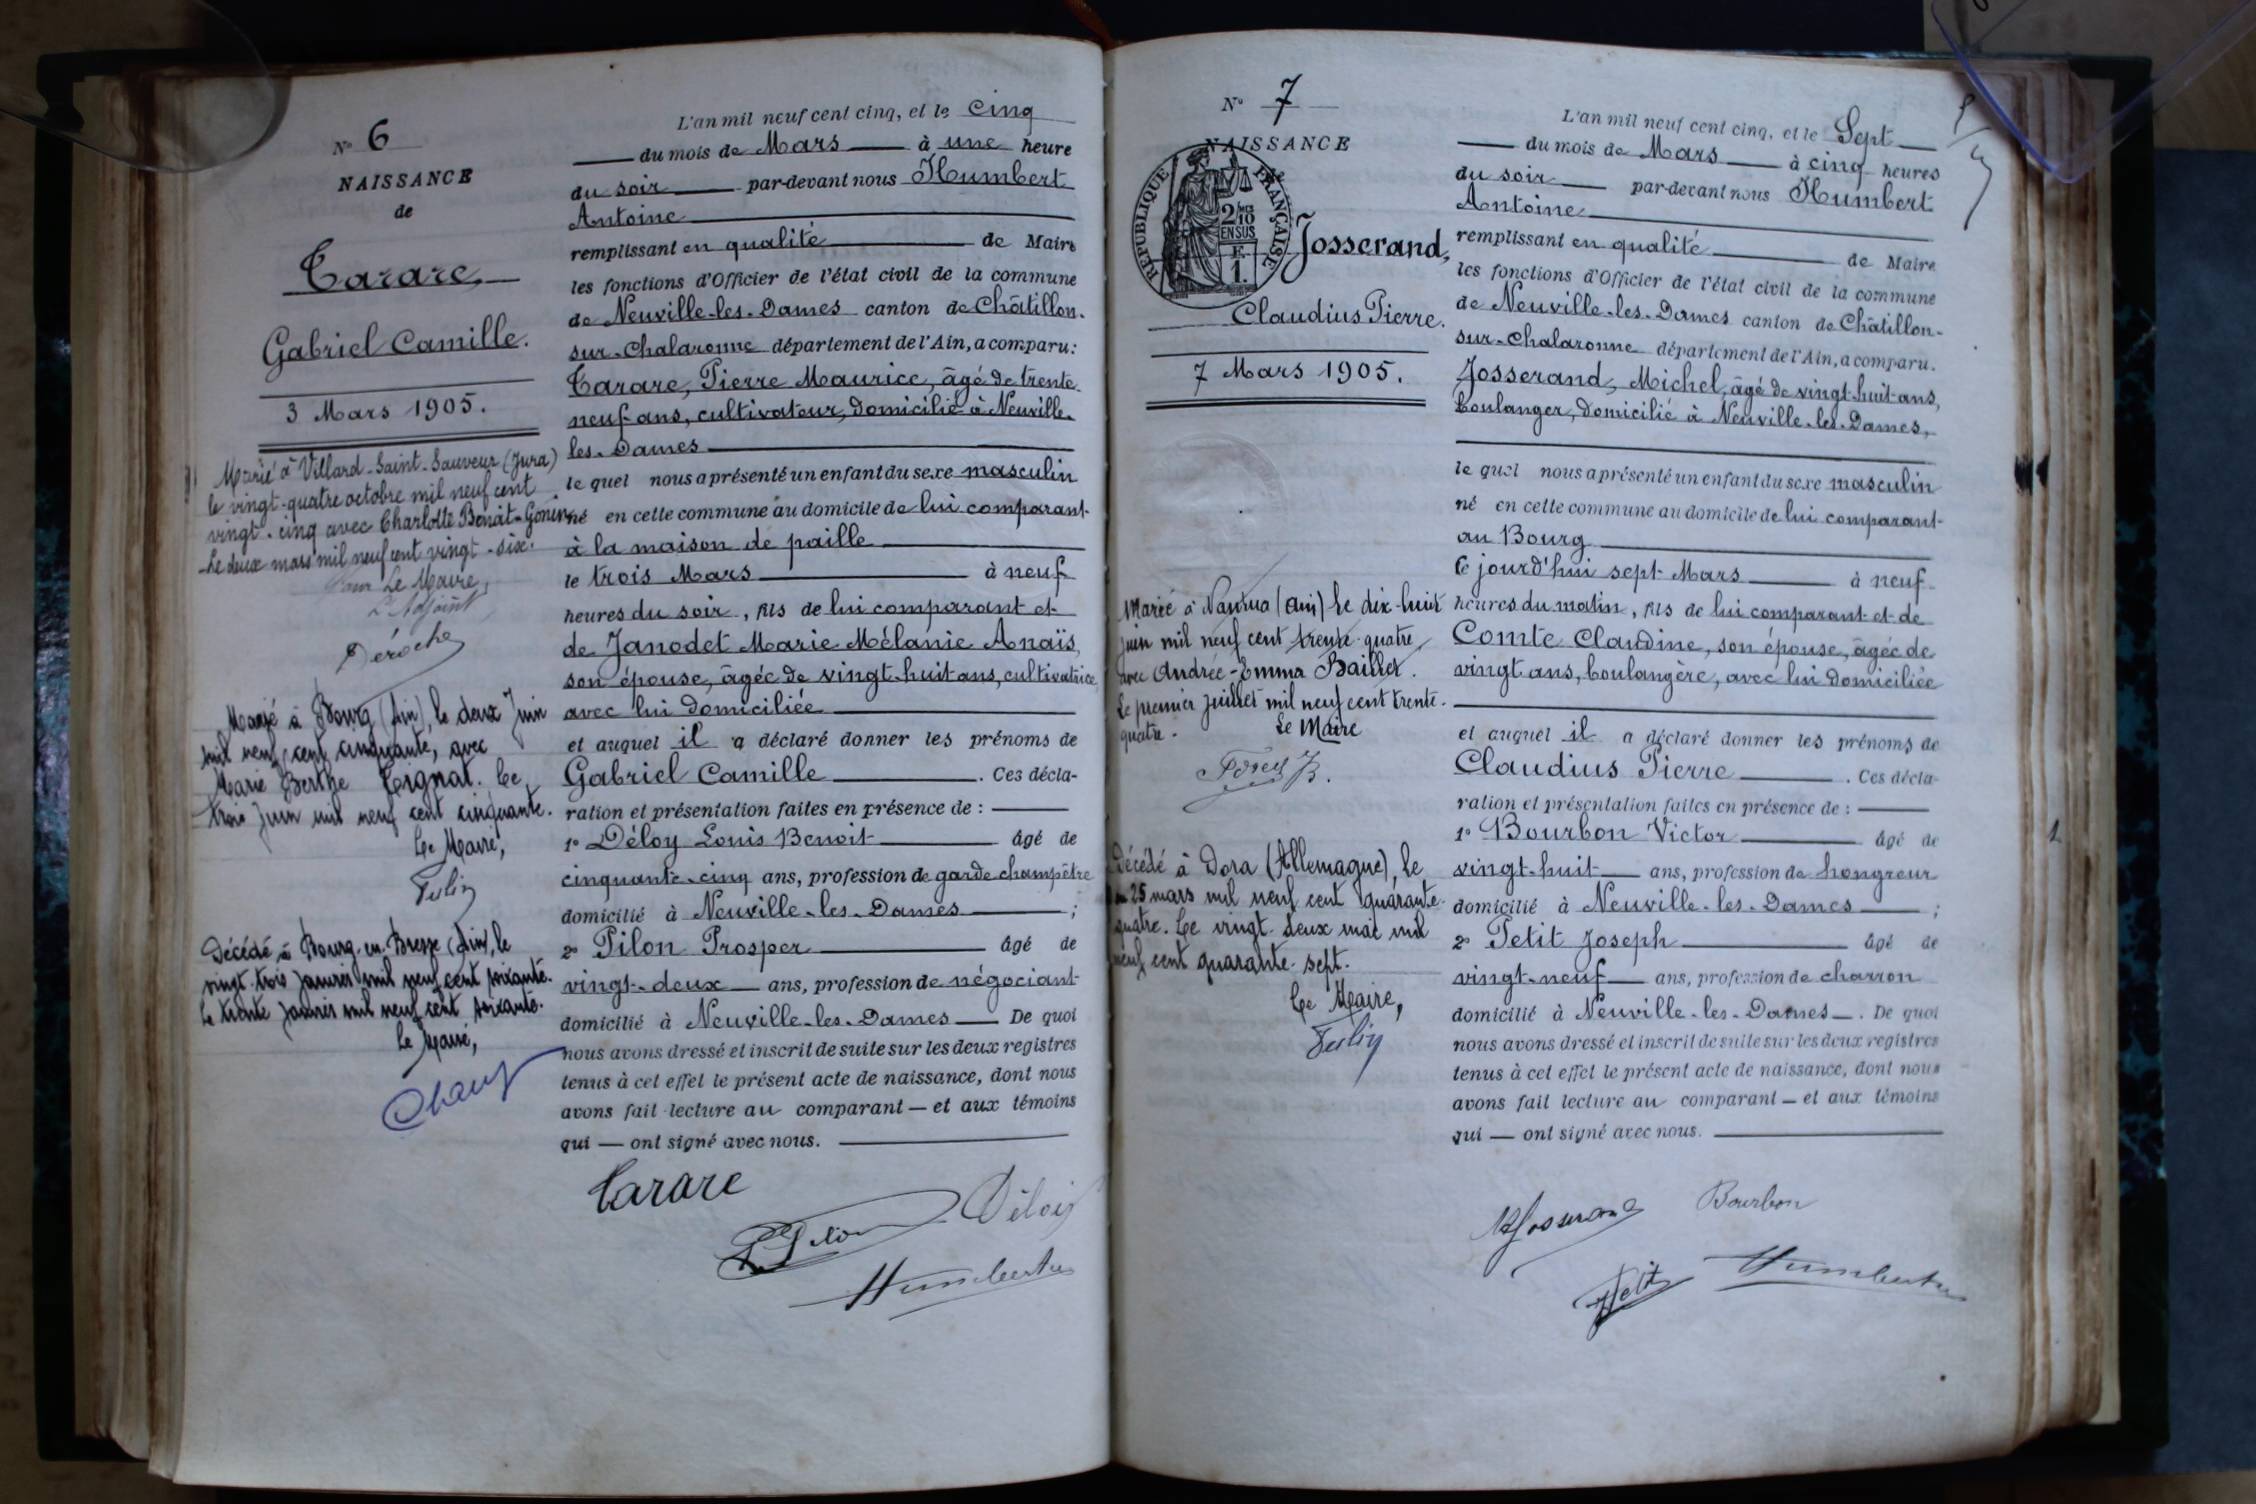 N° 6
NAISSANCE
de
Tarare,
Gabriel Camille.
3 Mars 1905.
Marié à Villard-Saint-Sauveur (Jura)
le vingt-quatre octobre mil neuf cent
vingt-cinq avec Charlotte Benoit-Gonin.
Le deux mars mil neuf cent vingt-six.
Pour Le Maire,
L'Adjoint,
Déroche
Marié à Bourg (Ain), le deux Juin
mil neuf cent cinquante, avec
Marie Berthe Tignat. Le
trois Juin mil neuf cent cinquante.
Le Maire,
Décédé à Bourg-en-Bresse (Ain), le
vingt-trois janvier mil neuf cent soixante.
Le trente janvier mil neuf cent soixante.
Le Maire,
L'an mil neuf cent cinq, et le cinq
du mois de Mars à une heure
du soir par-devant nous Humbert
Antoine
remplissant en qualité de Maire
les fonctions d'Officier de l'état civil de la commune
de Neuville-les-Dames canton de Châtillon-
sur-Chalaronne département de l'Ain, a comparu:
Tarare, Pierre Maurice, âgé de trente-
neuf ans, cultivateur, domicilié à Neuville-
les-Dames
le quel nous a présenté un enfant du sexe masculin
né en cette commune au domicile de lui comparant
à la maison de paille
le trois Mars à neuf
heures du soir, fils de lui comparant et
de Janodet Marie Mélanie Anaïs,
son épouse, âgée de vingt-huit ans, cultivatrice,
avec lui domiciliée
et auquel il a déclaré donner les prénoms de
Gabriel Camille. Ces décla-
ration et présentation faites en présence de :
1° Déloy Louis Benoit âgé de
cinquante-cinq ans, profession de garde champêtre
domicilié à Neuville-les-Dames ;
2° Pilon Prosper âgé de
vingt-deux ans, profession de négociant
domicilié à Neuville-les-Dames De quoi
nous avons dressé et inscrit de suite sur les deux registres
tenus à cet effet le présent acte de naissance, dont nous
avons fait lecture au comparant — et aux témoins
qui — ont signé avec nous.
Tarare
P. Pilon Déloy
Humbert
N° 7
NAISSANCE
de
RÉPUBLIQUE FRANÇAISE
2/10
EN SUS
F.
1.
Josserand,
Claudius Pierre.
7 Mars 1905.
Marié à Nantua (Ain) le dix-huit
juin mil neuf cent trente-quatre
avec Andrée-Emma Baillet.
Le premier juillet mil neuf cent trente-
quatre.
Le Maire
Décédé à Dora (Allemagne), le
25 mars mil neuf cent quarante-
quatre. Le vingt-deux mai mil
neuf cent quarante-sept.
Le Maire,
L'an mil neuf cent cinq, et le Sept
du mois de Mars à cinq heures
du soir par-devant nous Humbert
Antoine
remplissant en qualité de Maire
les fonctions d'Officier de l'état civil de la commune
de Neuville-les-Dames canton de Châtillon-
sur-Chalaronne département de l'Ain, a comparu.
Josserand, Michel, âgé de vingt-huit ans,
boulanger, domicilié à Neuville-les-Dames,
le quel nous a présenté un enfant du sexe masculin
né en cette commune au domicile de lui comparant
au Bourg
ce jourd'hui sept Mars à neuf
heures du matin, fils de lui comparant et de
Comte Claudine, son épouse, âgée de
vingt ans, boulangère, avec lui domiciliée
et auquel il a déclaré donner les prénoms de
Claudius Pierre. Ces décla-
ration et présentation faites en présence de :
1° Bourbon Victor âgé de
vingt-huit ans, profession de hongreur
domicilié à Neuville-les-Dames ;
2° Petit Joseph âgé de
vingt-neuf ans, profession de charron
domicilié à Neuville-les-Dames. De quoi
nous avons dressé et inscrit de suite sur les deux registres
tenus à cet effet le présent acte de naissance, dont nous
avons fait lecture au comparant — et aux témoins
qui — ont signé avec nous.
Josserand Bourbon
Petit Humbert